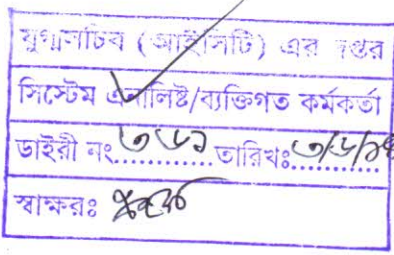 যুগ্মসচিব (আইসিটি) এর দপ্তর
সিস্টেম এনালিষ্ট/ব্যক্তিগত কর্মকর্তা
ডাইরী নং............তারিখঃ............
স্বাক্ষরঃ